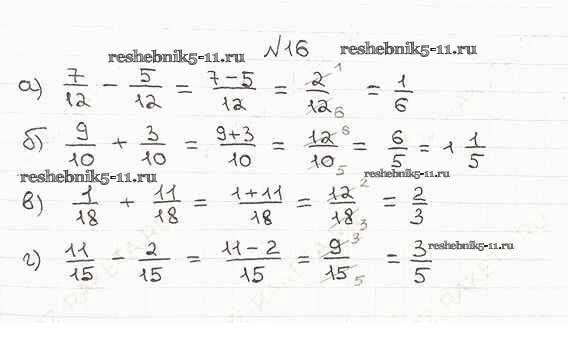 reshebnik5-11.ru №16 reshebnik5-11.ru
а) 7/12 - 5/12 = 7-5/12 = 2 1/12 6 = 1/6
б) 9/10 + 3/10 = 9+3/10 = 12 6/10 5 = 6/5 = 1 1/5
reshebnik5-11.ru reshebnik5-11.ru
в) 1/18 + 11/18 = 1+11/18 = 12 2/18 3 = 2/3
г) 11/15 - 2/15 = 11-2/15 = 9 3/15 5 = 3/5 reshebnik5-11.ru